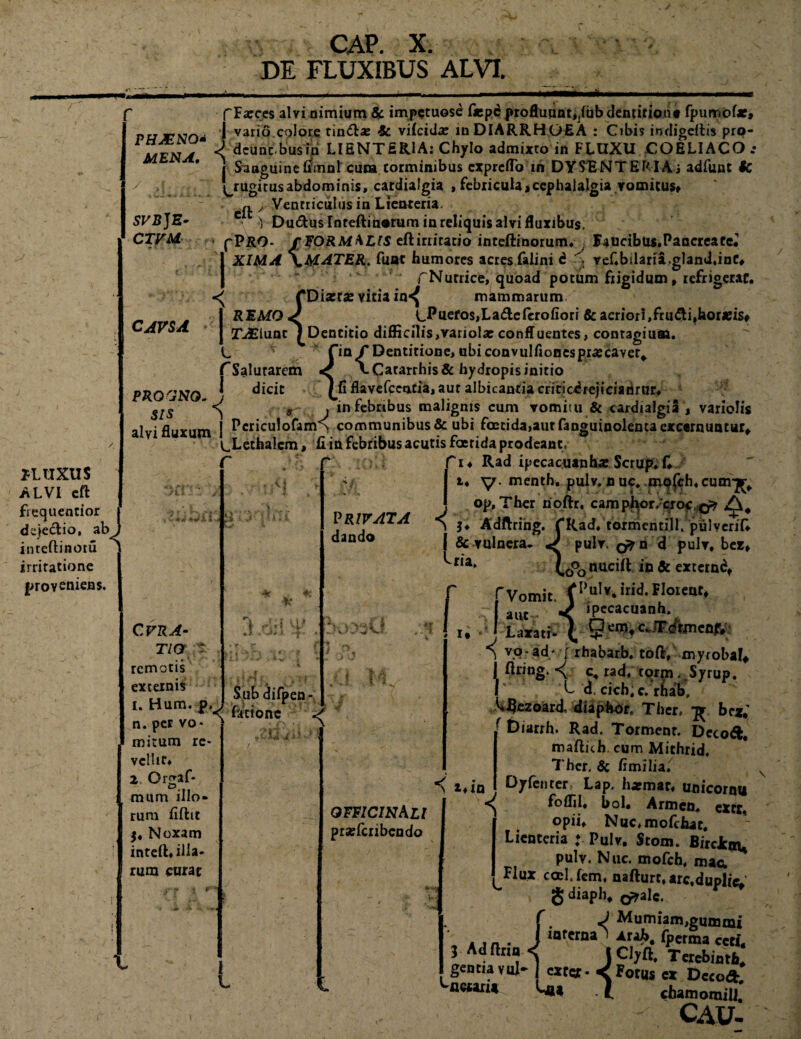 CAP. X.
DE FLUXIBUS ALVI.
FLUXUS
ALVI est
frequentior
dejectio, ab
intestinorū
irritatione
proveniens.
PHÆNO-
MENA.
Fæces alvi nimium & impetuosè sæpè profluunt, sub dentitione spumosæ,
vario colore tinctæ & viscidæ in DIARRHOEA : Cibis indigestis pro-
deuntibus in LIENTERIA: Chylo admixto in FLUXU COELIACO :
Sanguine simul cum torminibus expresso in DYSENTERIA; adsunt &
rugitus abdominis, cardialgia , febricula, cephalalgia vomitus,
SVBJE-
CTVM
est
Ventriculus in Lienteria.
Ductus Intestinorum in reliquis alvi fluxibus.
CAVSA
PRO-
XIMA
FORMALIS est irritatio intestinorum.
MATER. sunt humores acres salini è
Faucibus. Pancreate.
vesi.bilariâ.gland.int.
REMO
TÆ sunt
Diætæ vitia in
Nutrice, quoad potum frigidum, refrigerat.
mammarum
Pueros, Lacte serosiori & acriori, fructi, horæis,
Dentitio difficilis, variolæ confluentes, contagium.
PROGNO-
SIS
alvi fluxum
Salutarem
dicit
in Dentitione, ubi convulsiones præcavet,
Catarrhis & hydropis initio
si flavescentia, aut albicantia criticè rejiciantur.
Periculosam
in febribus malignis cum vomitu & cardialgiâ , variolis
communibus & ubi foetida, aut sanguinolenta excernuntur,
Lethalem, si in febribus acutis foetida prodeant.
CVRA-
TIO
remotis
externis
1. Hum. p.
n. per vo-
mitum re-
vellit,
2. Orgas-
mum illo-
rum sistit
3, Noxam
intest. illa-
rum curat
PRIVATA
dando
1. Rad ipecacuanhæ Scrup. s.
2. menth. pulv. nuc. mosch. cum
op, Ther nostr. camphor. croc.
3. Adstring.
& vulnera-
ria.
Rad. tormentill. pulveris.
pulv. n d pulv. bez,
nucist. in & externè,
Sub dispen-
satione
OFFICINALI
præscribendo
1.
Vomit.
aut
Laxati-
Pulv. irid. Florent,
ipecacuanh.
vo-ad-
string.
rhabarb. tost, myrobal,
c. rad. torm. Syrup.
d. cich. c. rhab.
2. in
Bezoard. diaphor. Ther. bez.
Diarrh. Rad. Torment. Decoct.
mastich. cum Mithrid.
Ther. & similia.
Dysenter. Lap. hæmat. unicornu
fossil. bol. Armen. extr.
opii. Nuc. moschat.
Lienteria : Pulv. Stom. Birckm.
pulv. Nuc. mosch. mac.
Flux coel. sem. nasturt. arc. duplic.
diaph. ale.
3 Adstrin
gentia vul-
neraria
interna
Mumiam, gummi
Arab. sperma ceti.
exter-
na
Clyst. Terebinth.
Fotus ex Decoct.
chamomill.
CAU-